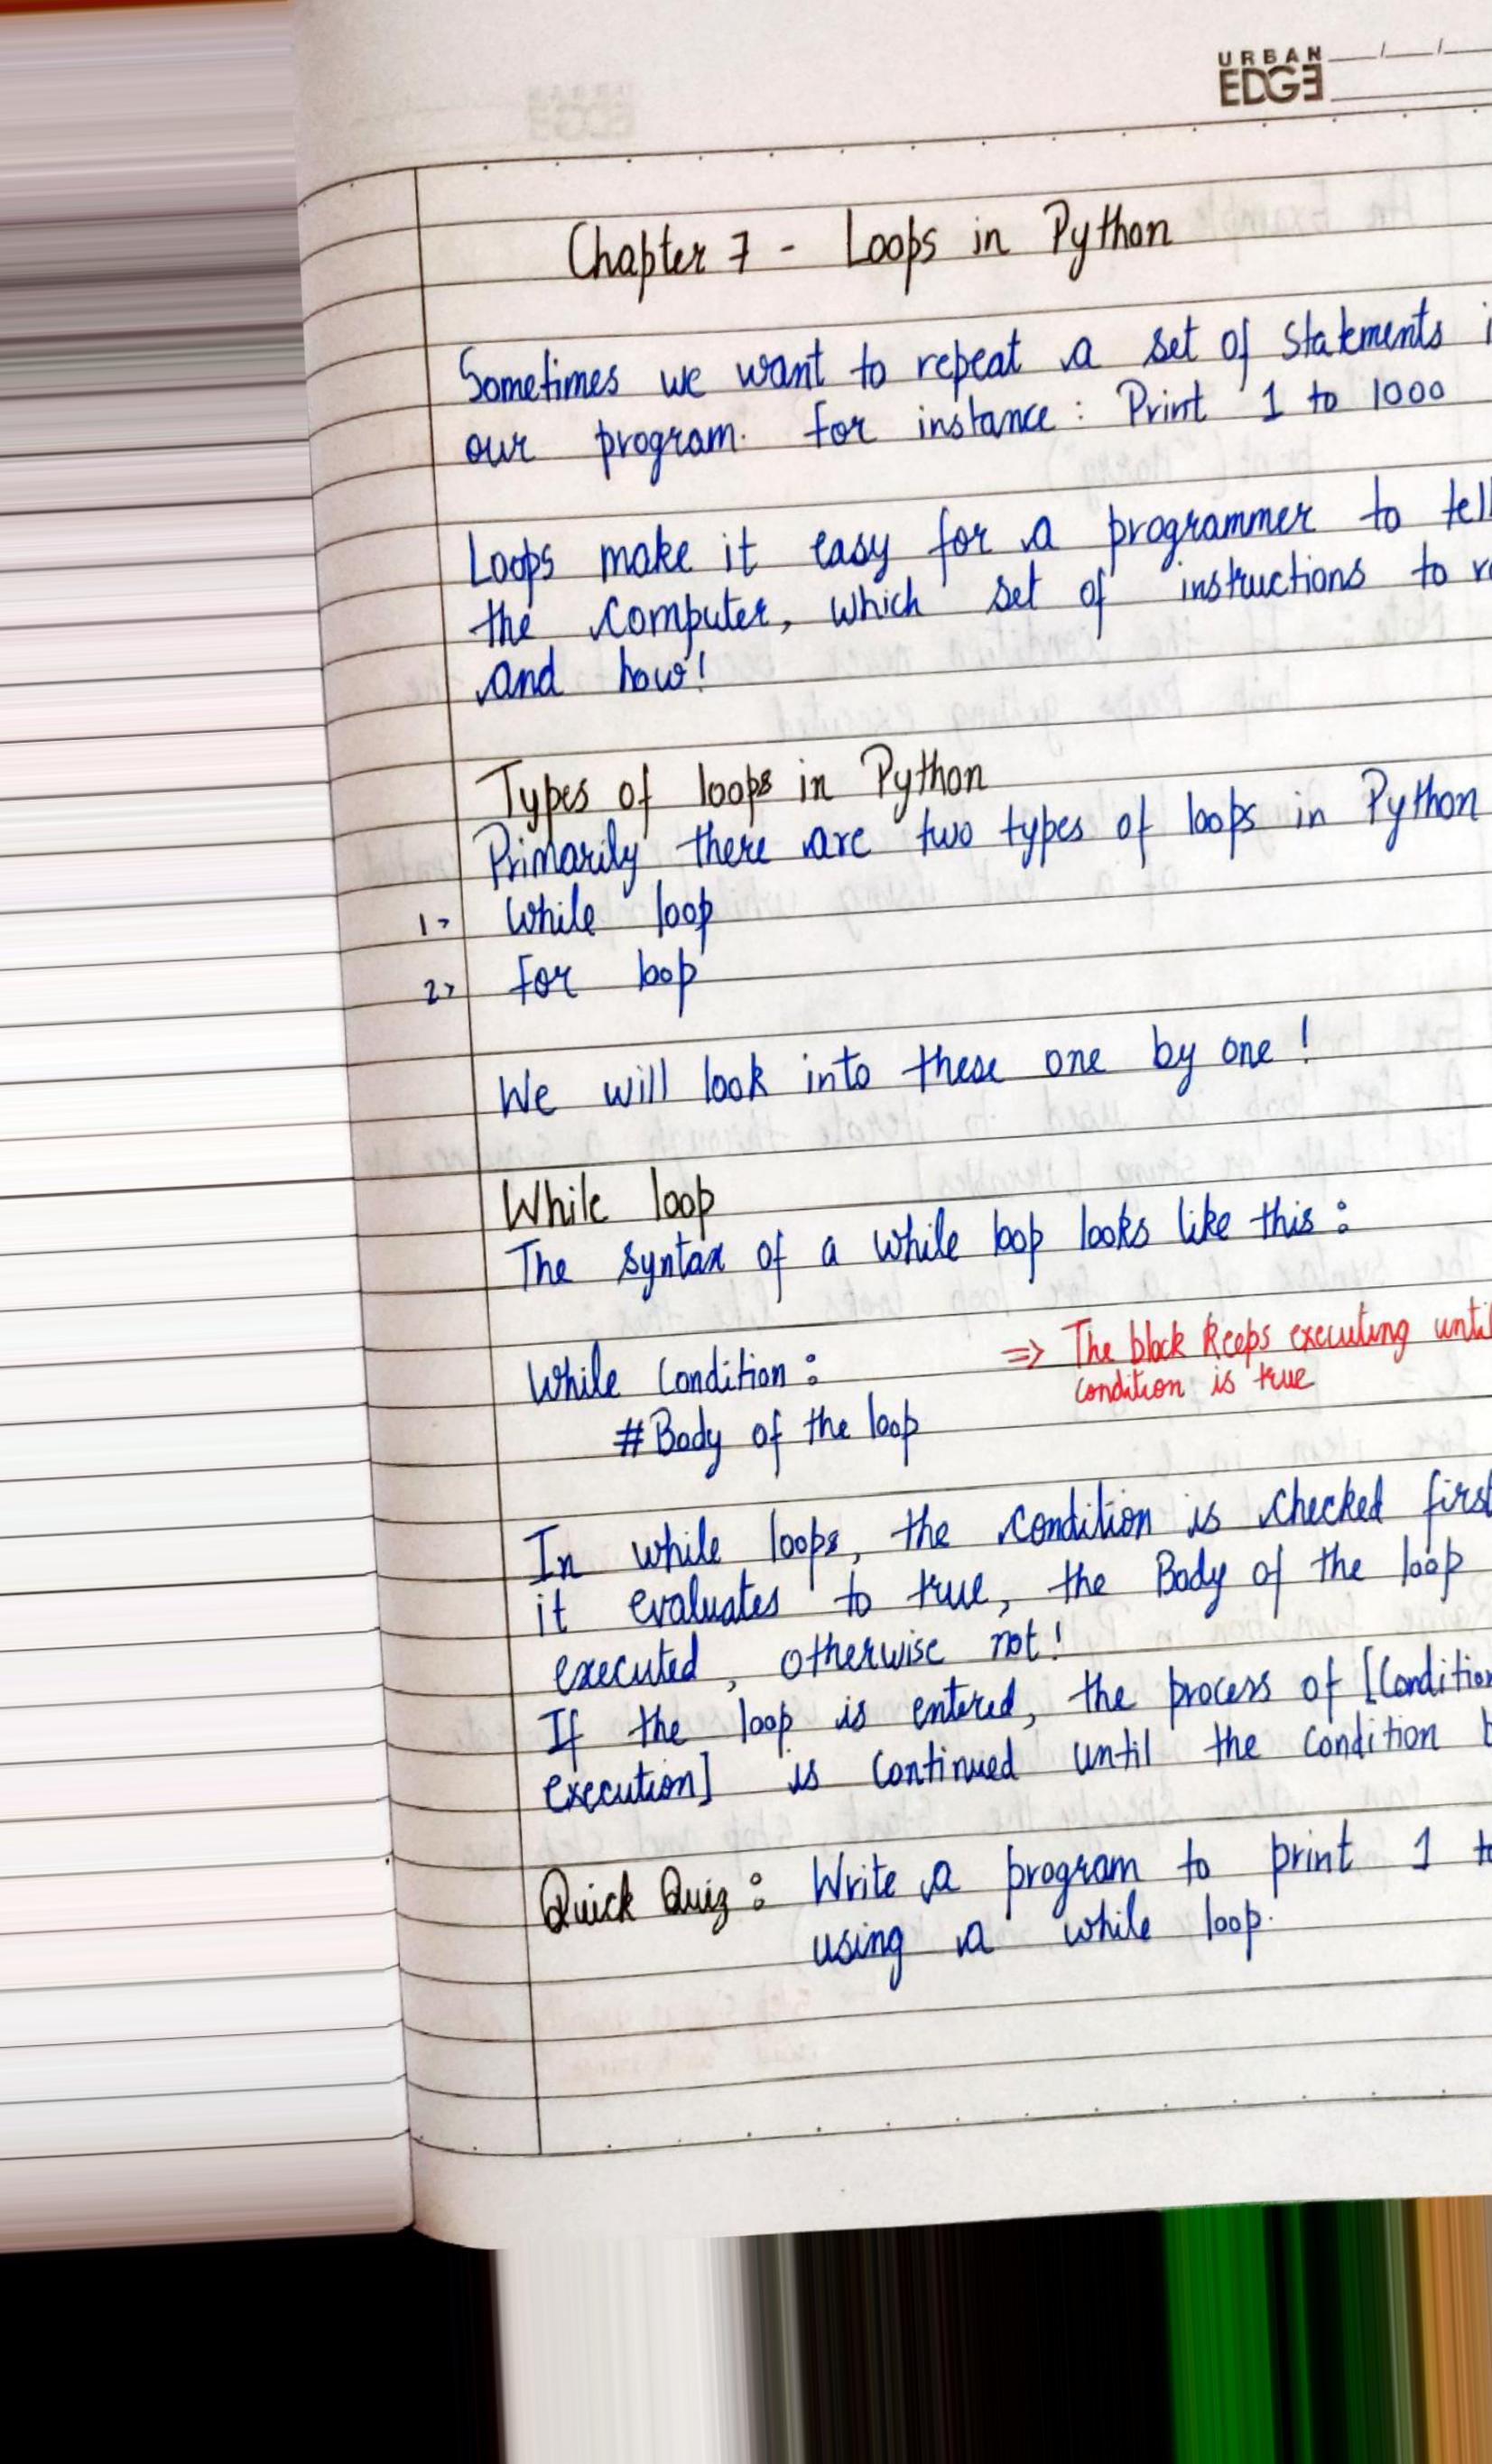 URBAN
EDGE
Chapter 7 - Loops in Python
Sometimes we want to repeat a set of statements
our program. For instance: Print 1 to 1000
Loops make it easy for a programmer to tell
the computer, which set of instructions to
and how!
Types of loops in Python
Primarily there are two types of loops in Python
1> While loop
2> For loop
We will look into these one by one!
While loop
The syntax of a while loop looks like this:
While Condition: => The block keeps executing until
condition is true
#Body of the loop
In while loops, the condition is checked first
it evaluates to true, the Body of the loop
executed, otherwise not!
If the loop is entered, the process of [Condition
execution] is continued until the condition
Quick Quiz: Write a program to print 1 to
using a while loop.